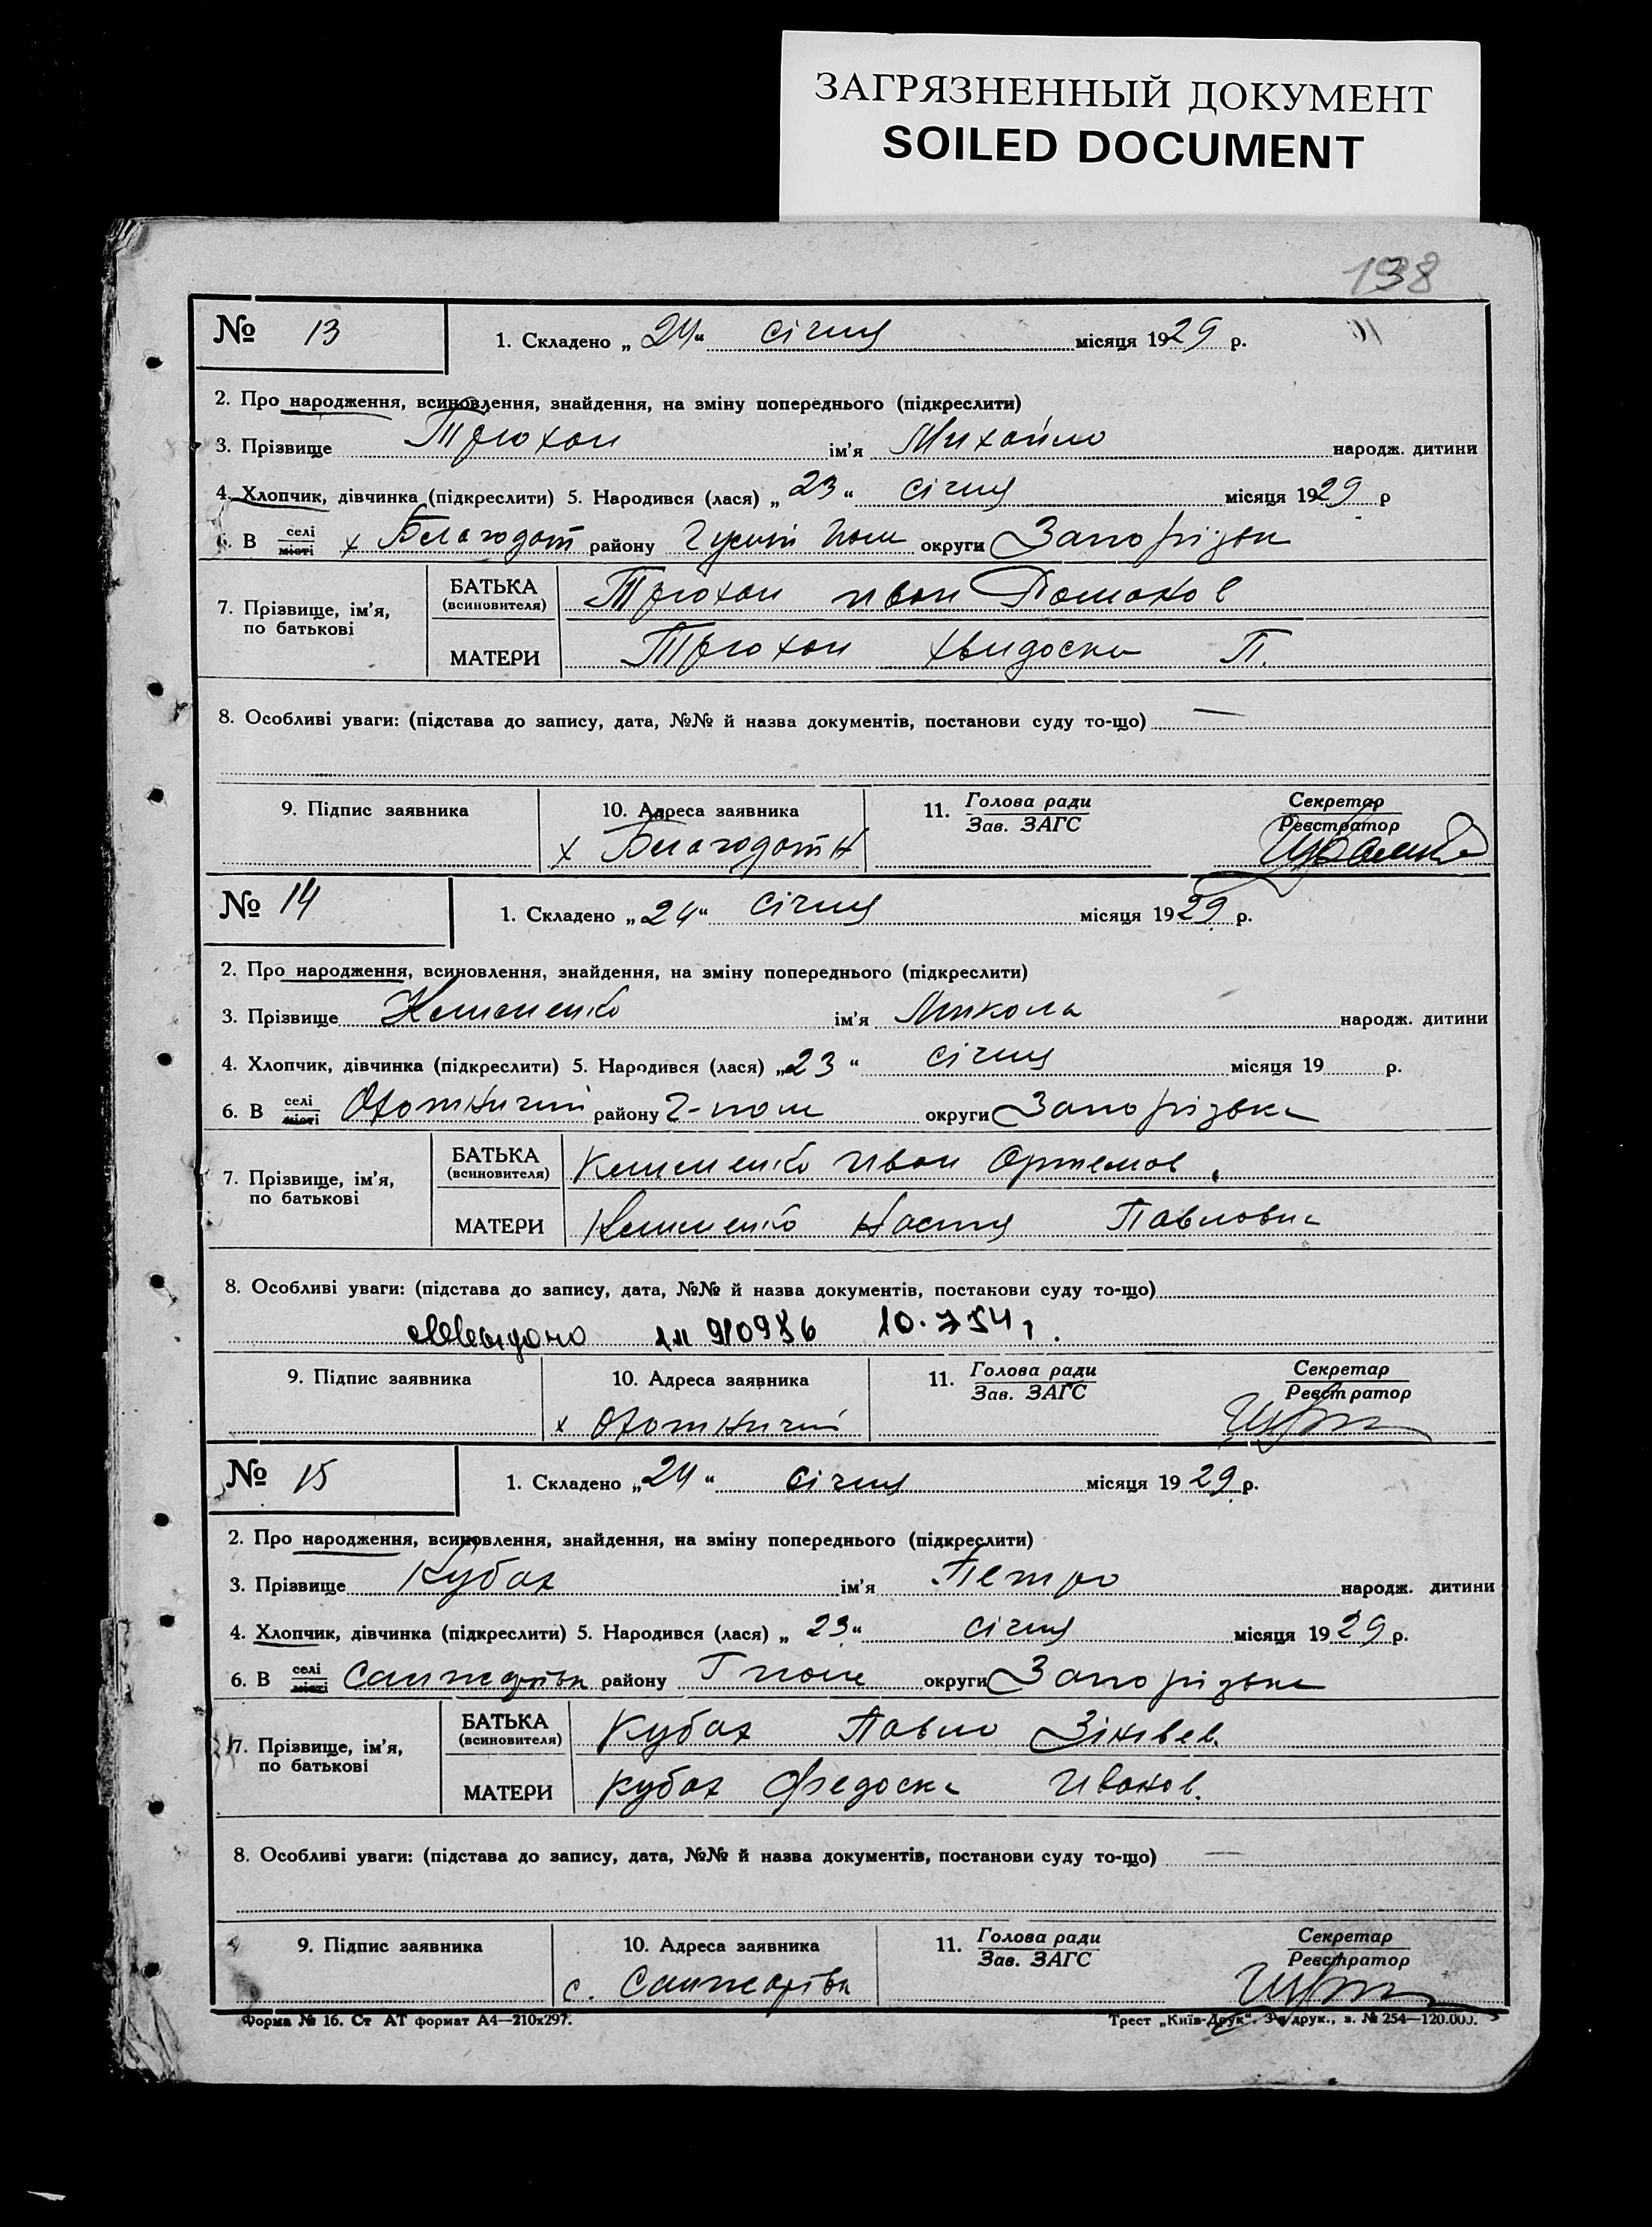 ЗАГРЯЗНЕННЫЙ ДОКУМЕНТ
SOILED DOCUMENT
198
№ 13
1. Складено „24“ січня місяця 1929 р.
2. Про народження, всиновлення, знайдення, на зміну попереднього (підкреслити)
3. Прізвище Трюхан ім'я Михайло народж. дитини
4. Хлопчик, дівчинка (підкреслити) 5. Народився (лася) „23“ січня місяця 1929 р
6. В селі/місті х Благодат району Гуляй Поле округи Запорізьк
7. Прізвище, ім'я, по батькові
БАТЬКА (всиновителя) Трюхан Иван
МАТЕРИ Трюхан Хведоска П.
8. Особливі уваги: (підстава до запису, дата, №№ й назва документів, постанови суду то-що) —
9. Підпис заявника
10. Адреса заявника
х Благодатн
11. Голова ради
Зав. ЗАГС
Секретар
Реєстратор
№ 14
1. Складено „24“ січня місяця 1929 р.
2. Про народження, всиновлення, знайдення, на зміну попереднього (підкреслити)
3. Прізвище ім'я Микола народж. дитини
4. Хлопчик, дівчинка (підкреслити) 5. Народився (лася) „23“ січня місяця 19 р.
6. В селі/місті Охотничий району Г-поле округи Запорізька
7. Прізвище, ім'я, по батькові
БАТЬКА (всиновителя) Иван Артемов.
МАТЕРИ Настя Павловна
8. Особливі уваги: (підстава до запису, дата, №№ й назва документів, постанови суду то-що)
10.7 54 г.
9. Підпис заявника
10. Адреса заявника
х Охотничий
11. Голова ради
Зав. ЗАГС
Секретар
Реєстратор
№ 15
1. Складено „24“ січня місяця 1929 р.
2. Про народження, всиновлення, знайдення, на зміну попереднього (підкреслити)
3. Прізвище Кубах ім'я Петро народж. дитини
4. Хлопчик, дівчинка (підкреслити) 5. Народився (лася) „23“ січня місяця 1929 р.
6. В селі/місті Санжарівка району Г поле округи Запорізька
7. Прізвище, ім'я, по батькові
БАТЬКА (всиновителя) Кубах Павло Зінвев.
МАТЕРИ Кубах Федоска Иванов.
8. Особливі уваги: (підстава до запису, дата, №№ й назва документів, постанови суду то-що) —
9. Підпис заявника
10. Адреса заявника
с. Санжарівка
11. Голова ради
Зав. ЗАГС
Секретар
Реєстратор
Форма № 16. Ст АТ формат А4—210x297.
Трест „Київ-Друк“. 3-я друк., з. № 254—120.000.